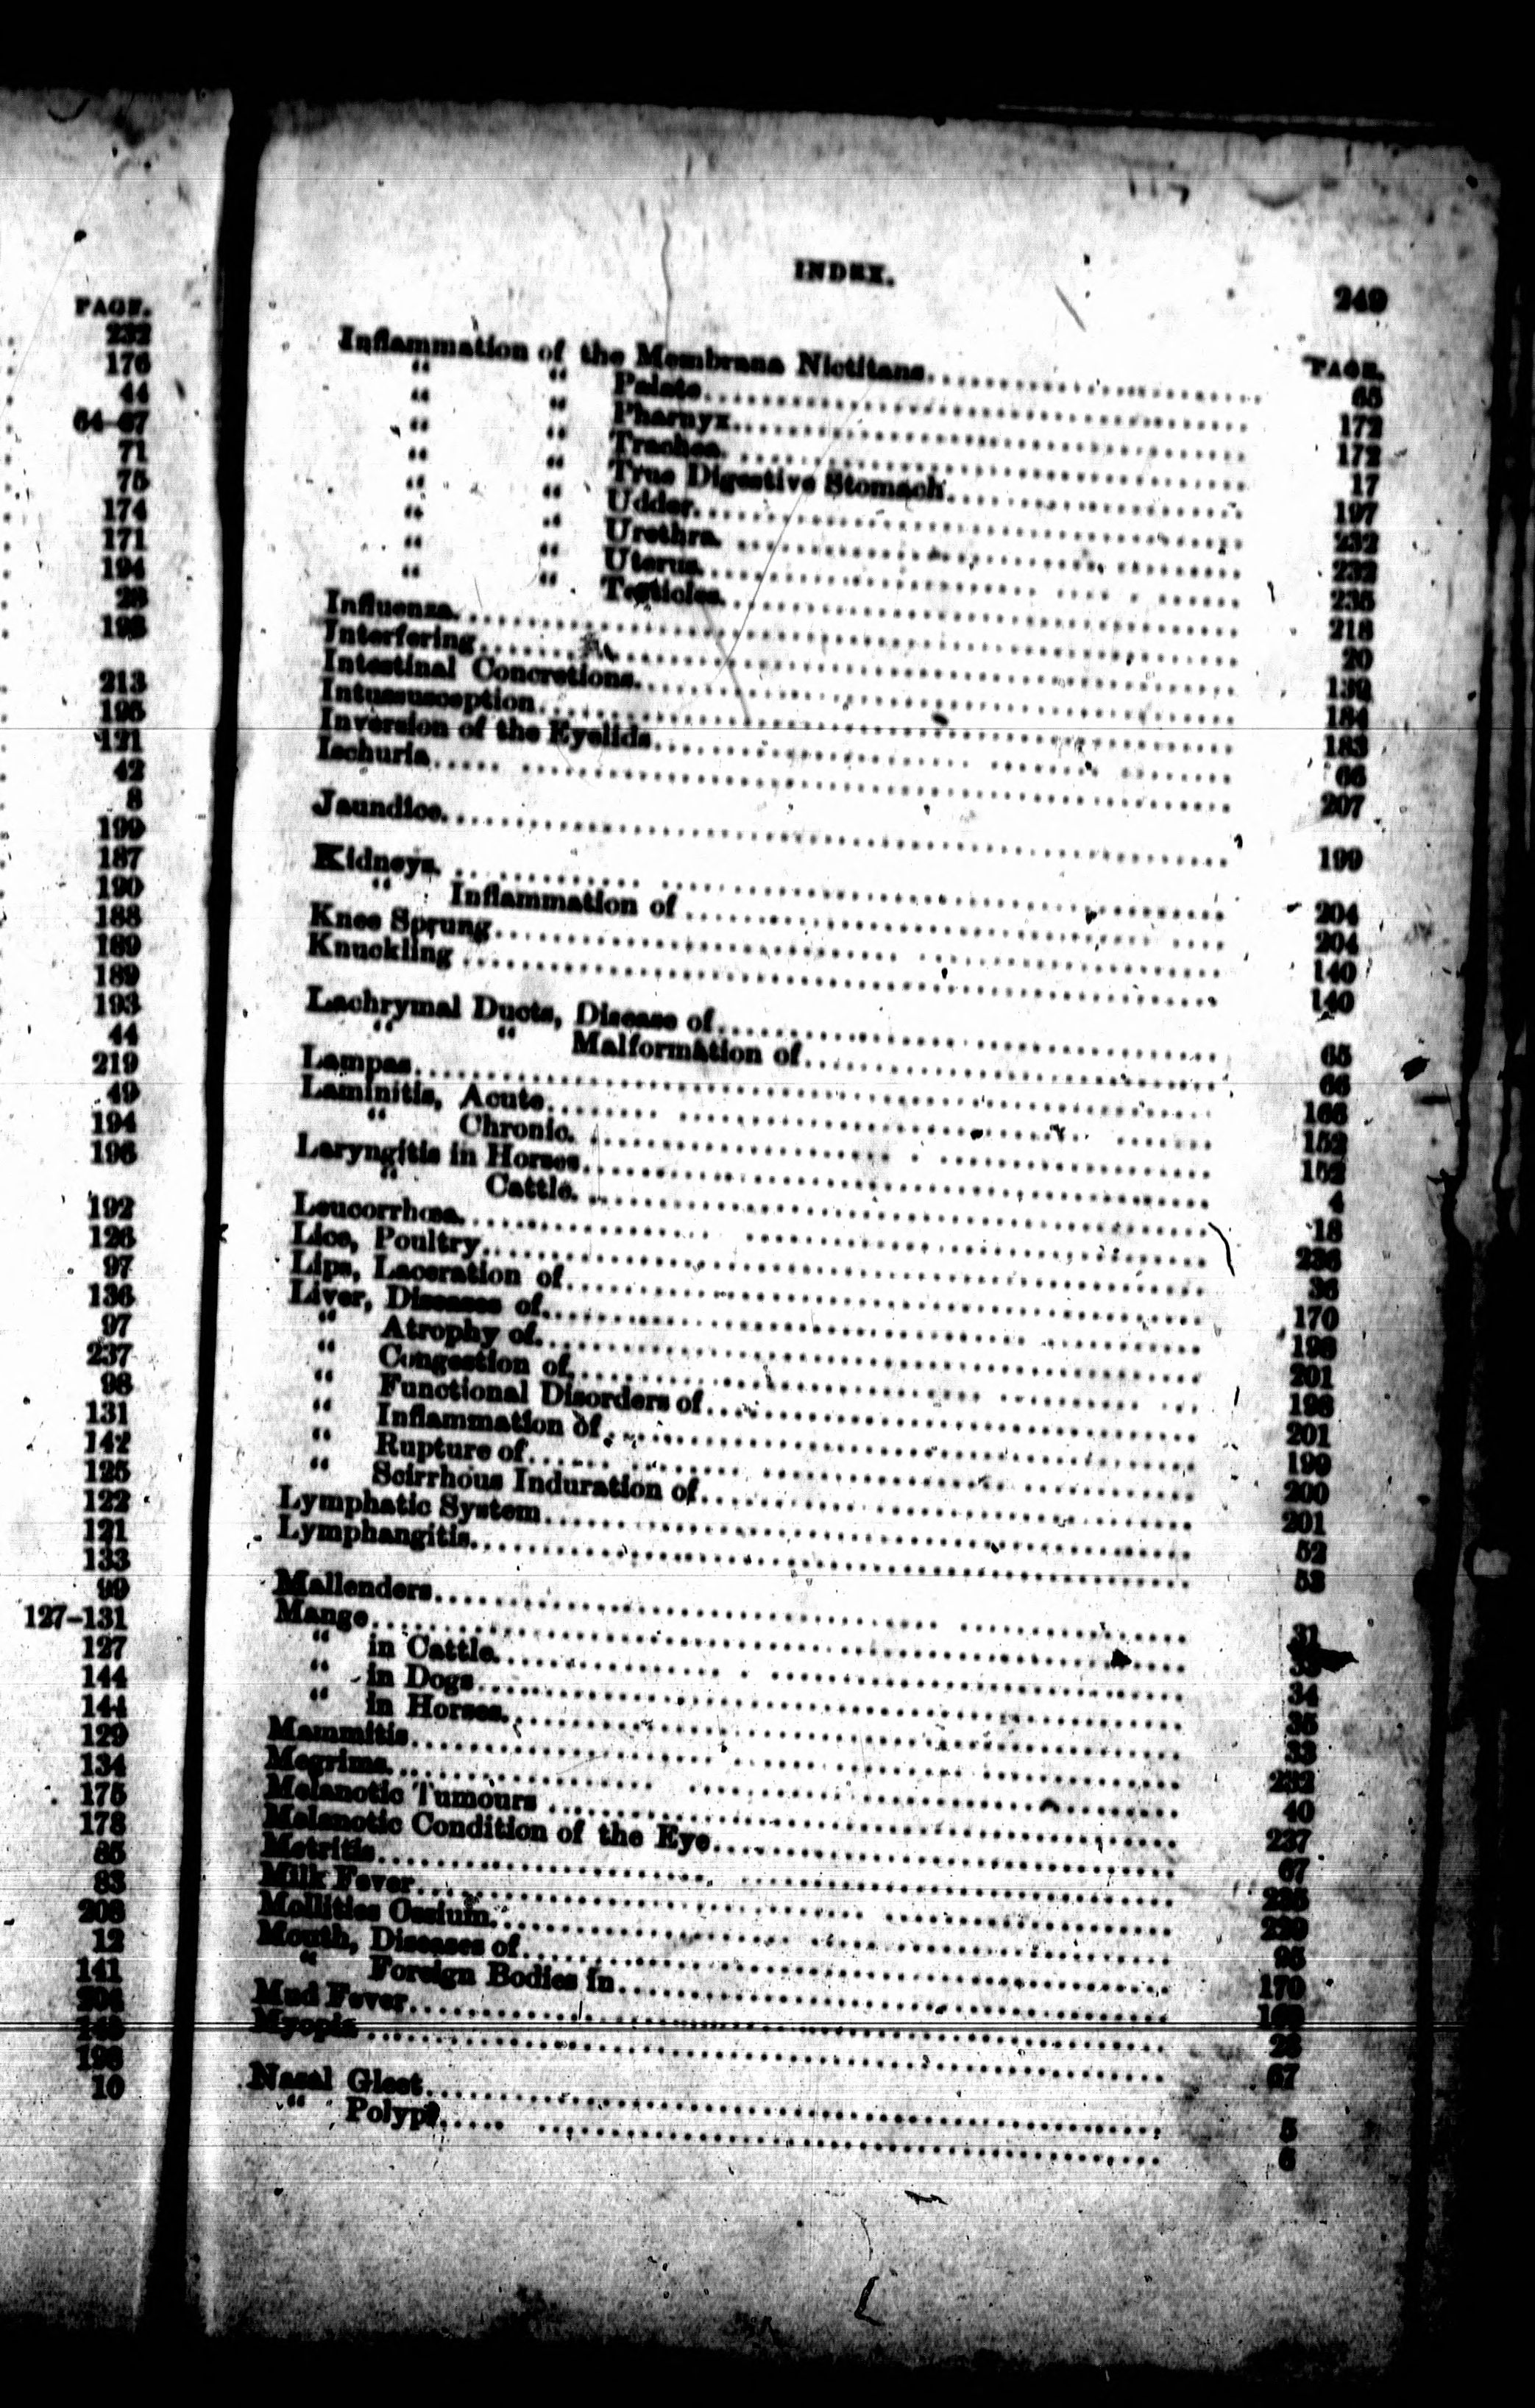 PAGE.
232
176
44
64-67
71
75
174
171
194
28
198
213
195
121
42
8
199
187
190
188
189
189
193
44
219
49
194
196
192
126
97
136
97
237
98
131
142
125
122
121
133
99
127-131
127
144
144
129
134
175
178
85
83
208
12
141
204
198
10
INDEX. 249
PAGE.
Inflammation of the Membrana Nictitans 65
“ “ Palate 172
“ “ Pharnyx 172
“ “ Trachea 17
“ “ True Digestive Stomach 197
“ “ Udder 232
“ “ Urethra 232
“ “ Uterus 235
“ “ Testicles 218
Influenza 20
Interfering 139
Intestinal Concretions 184
Intussusception 183
Inversion of the Eyelids 66
Ischuria 207
Jaundice 199
Kidneys 204
“ Inflammation of 204
Knee Sprung 140
Knuckling 140
Lachrymal Ducts, Disease of 65
“ “ Malformation of 66
Lampas 168
Laminitis, Acute 152
“ Chronic 152
Laryngitis in Horses 4
“ Cattle 18
Leucorrhœa 236
Lice, Poultry 36
Lips, Laceration of 170
Liver, Diseases of 198
“ Atrophy of 201
“ Congestion of 198
“ Functional Disorders of 201
“ Inflammation of 199
“ Rupture of 200
“ Scirrhous Induration of 201
Lymphatic System 52
Lymphangitis 53
Mallenders 31
Mange
“ in Cattle 34
“ in Dogs 35
“ in Horses 33
Mammitis 232
Megrims 40
Melanotic Tumours 237
Melanotic Condition of the Eye 67
Metritis 235
Milk Fever 230
Mollities Ossium 95
Mouth, Diseases of 170
“ Foreign Bodies in
Mud Fever 28
Myopia 67
Nasal Gleet 5
“ Polypi 6